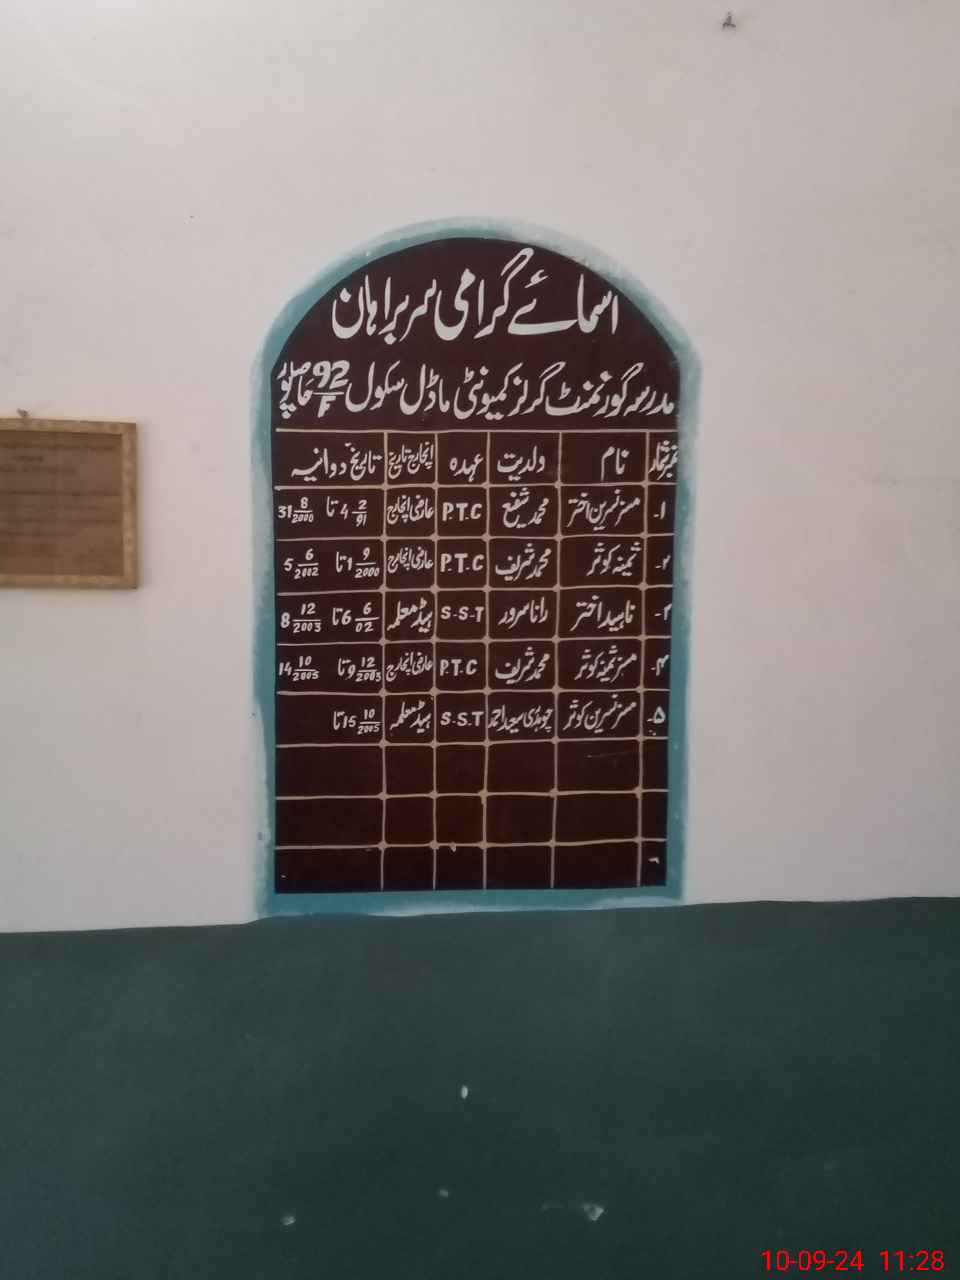 اسمائے گرامی سربراہان
مدرسہ گورنمنٹ گرلز کمیونٹی ماڈل سکول 92/F حاصلپور
نمبر شمار نام ولدیت عہدہ انچارج تاریخ تاریخ دوانیہ
۱- مسز نسرین اختر محمد شفیع P.T.C عارضی انچارج 4 2/91 تا 31 8/2000
۲- ثمینہ کوثر محمد شریف P.T.C عارضی انچارج 1 9/2000 تا 5 6/2002
۳- ناہید اختر رانا سرور S-S-T ہیڈ معلمہ 6 6/02 تا 8 12/2003
۴- مسز ثمینہ کوثر محمد شریف P.T.C عارضی انچارج 9 12/2003 تا 14 10/2005
۵- مسز نسرین کوثر چوہدری سعید احمد S.S.T ہیڈ معلمہ 15 10/2005 تا
10-09-24 11:28